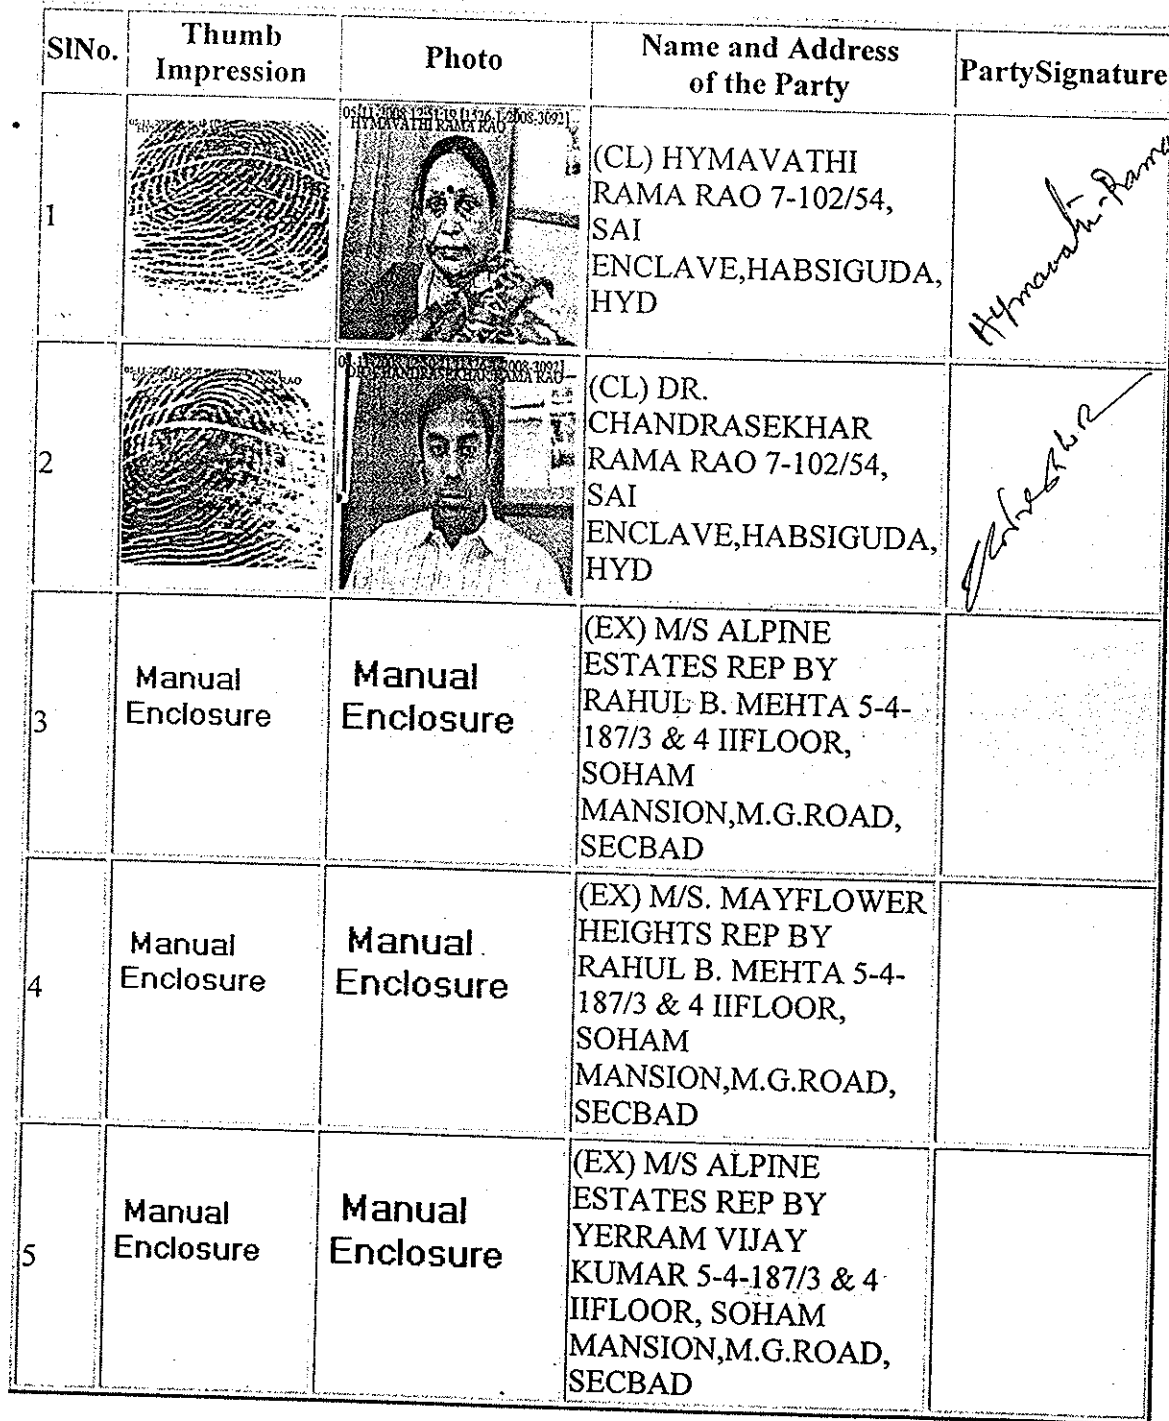 SlNo.
Thumb
Impression
Photo
Name and Address
of the Party
PartySignature
1
HYMAVATHI RAMA RAO
(CL) HYMAVATHI
RAMA RAO 7-102/54,
SAI
ENCLAVE,HABSIGUDA,
HYD
Hymavathi-Rama
2
(CL) DR.
CHANDRASEKHAR
RAMA RAO 7-102/54,
SAI
ENCLAVE,HABSIGUDA,
HYD
3
Manual
Enclosure
Manual
Enclosure
(EX) M/S ALPINE
ESTATES REP BY
RAHUL B. MEHTA 5-4-
187/3 & 4 IIFLOOR,
SOHAM
MANSION,M.G.ROAD,
SECBAD
4
Manual
Enclosure
Manual
Enclosure
(EX) M/S. MAYFLOWER
HEIGHTS REP BY
RAHUL B. MEHTA 5-4-
187/3 & 4 IIFLOOR,
SOHAM
MANSION,M.G.ROAD,
SECBAD
5
Manual
Enclosure
Manual
Enclosure
(EX) M/S ALPINE
ESTATES REP BY
YERRAM VIJAY
KUMAR 5-4-187/3 & 4
IIFLOOR, SOHAM
MANSION,M.G.ROAD,
SECBAD